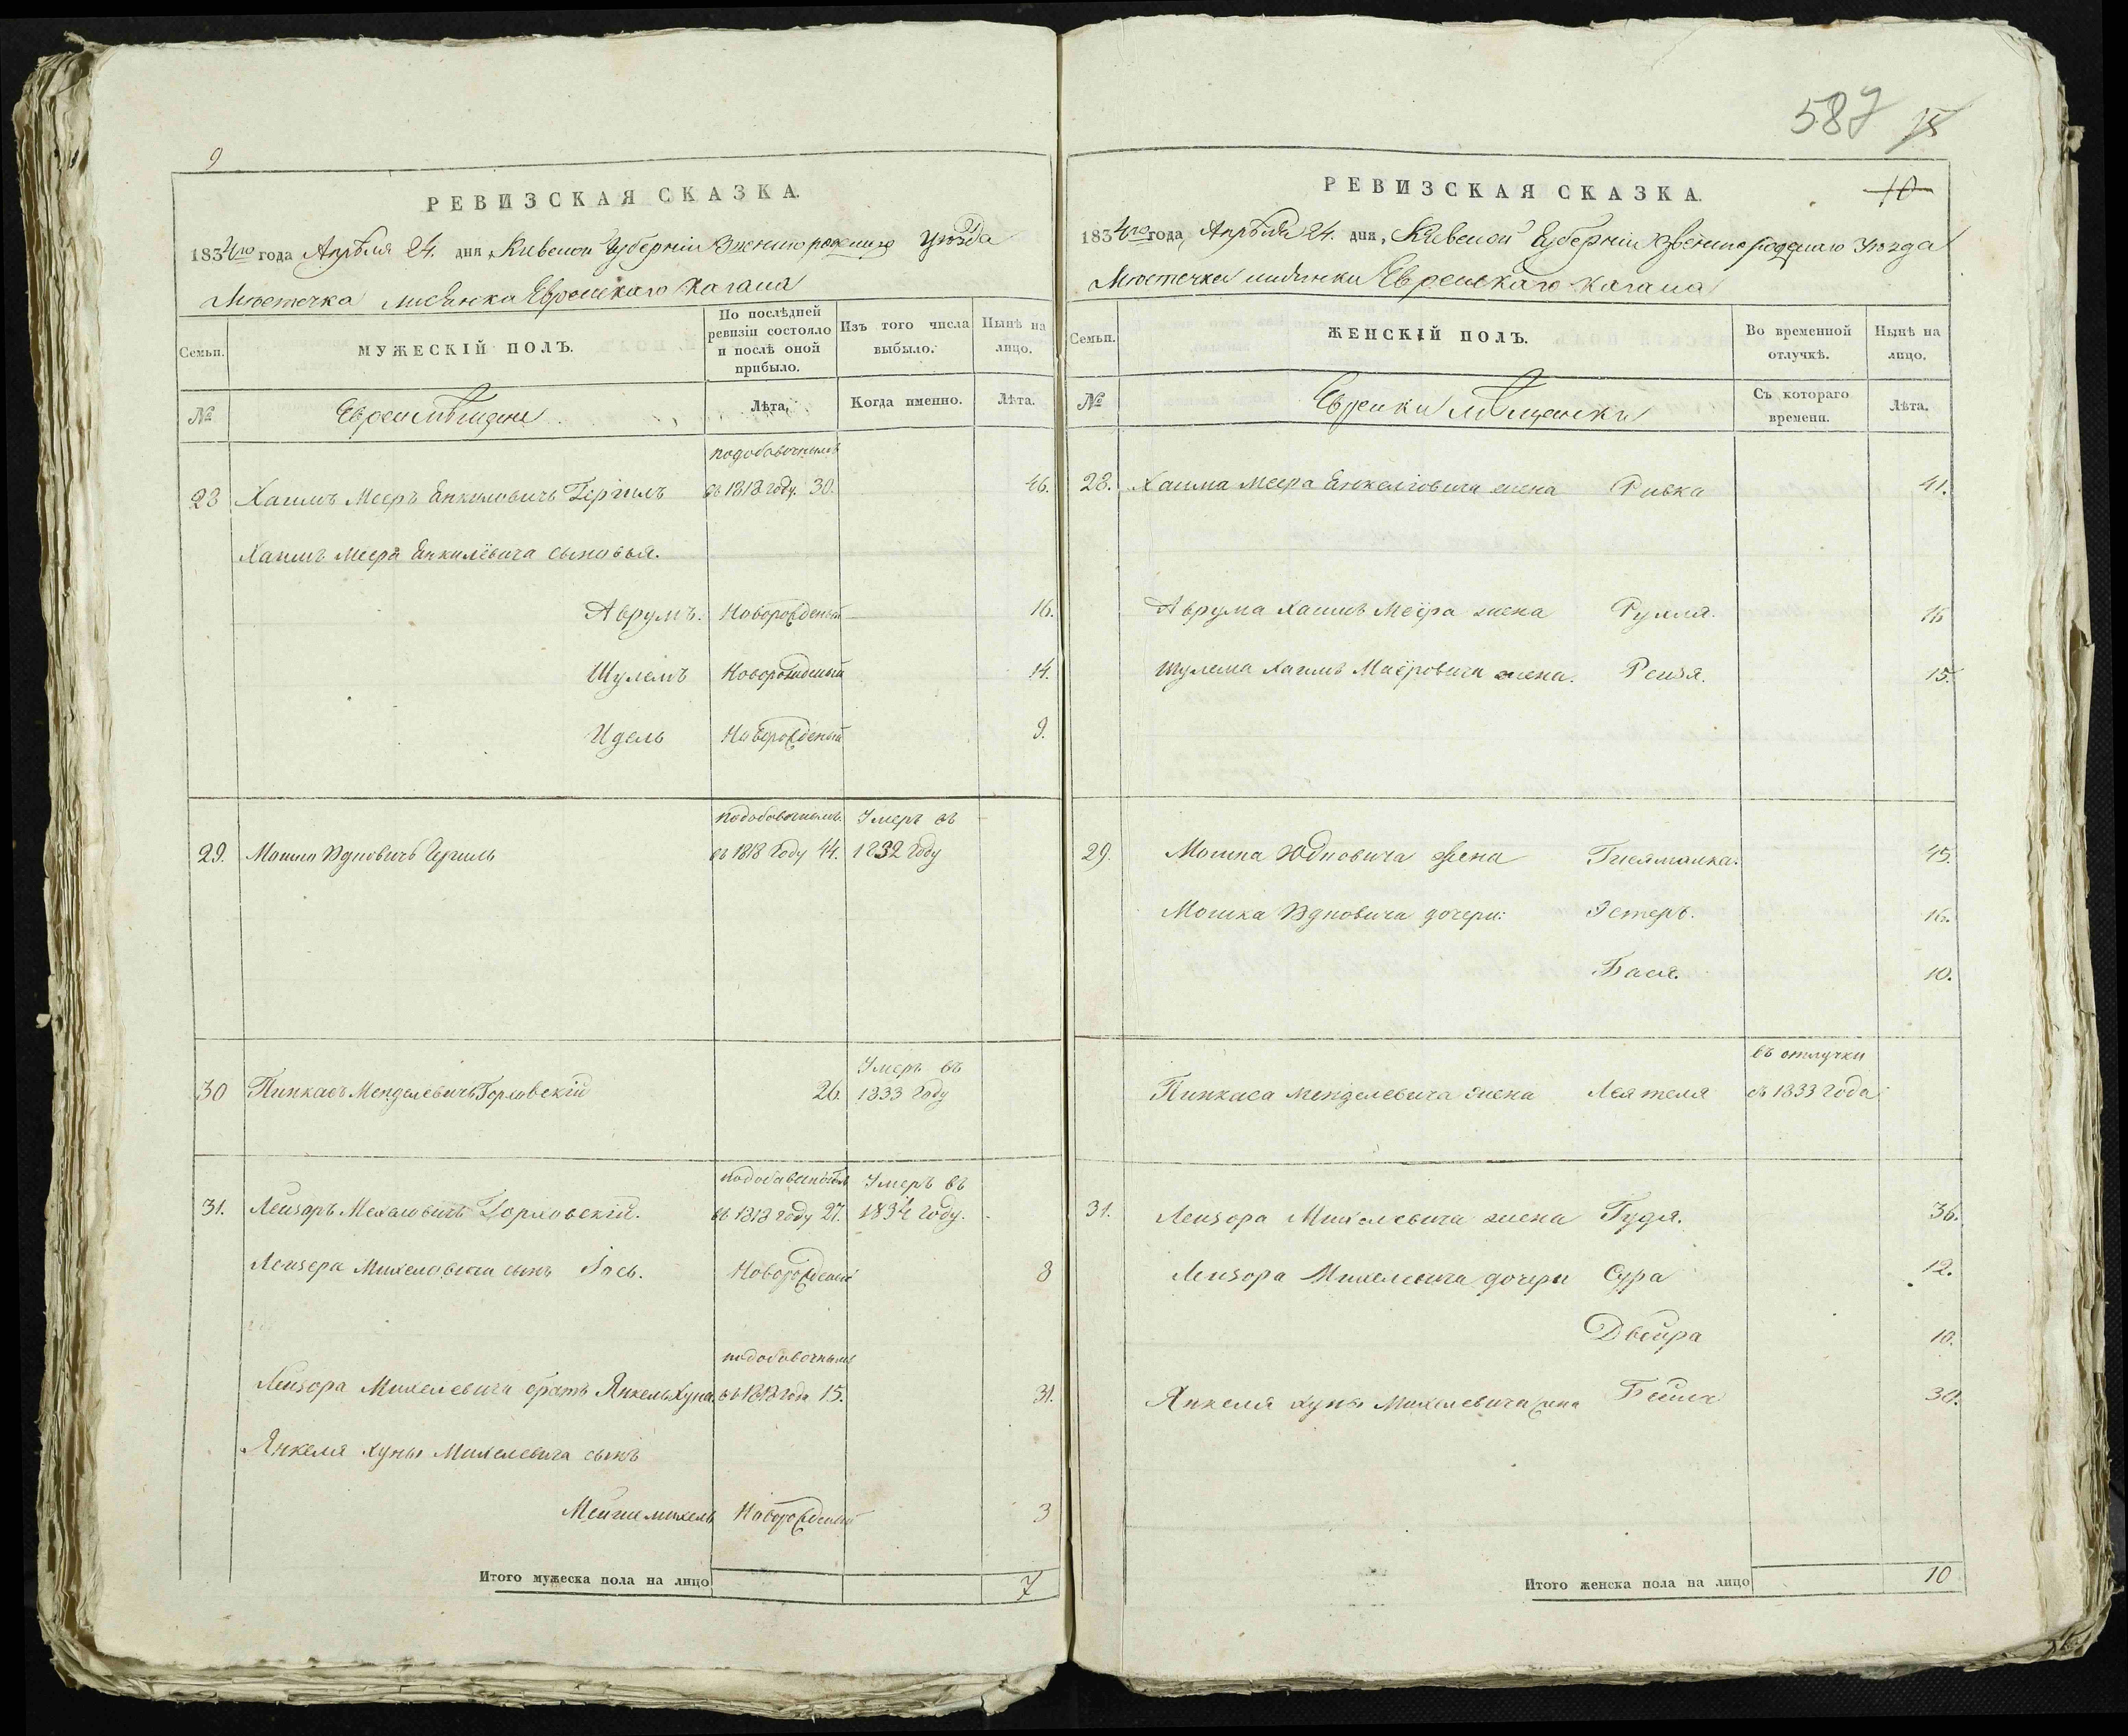 9
РЕВИЗСКАЯ СКАЗКА.
1834го года Апрѣля 24. дня, Кіевской Губерніи Звенигородскаго Уѣзда
Мѣстечка Лисянки Еврейскаго Кагала
Семьи.
МУЖЕСКІЙ ПОЛЪ.
По послѣдней ревизіи состояло и послѣ оной прибыло.
Изъ того числа выбыло.
Нынѣ на лицо.
№
Евреи Мѣщане
Лѣта.
Когда именно.
Лѣта.
подобавочнымъ
28 Хаимъ Мееръ Енкилювичъ въ 1818 году. 30. 46.
Хаимъ Меера Енкилёвича сыновья.
Аврумъ. Новорожденый 16.
Шулемъ Новорожденый 14.
Идель Новорожденый 9.
подобовочнымъ. Умеръ въ
29. Мошко Юдковичъ въ 1818 Году 44. 1832 Году
Умеръ въ
30 Пинкасъ Менделевичъ Горловскій 26. 1833 Году
Умеръ въ
31. Лейзоръ Михелевичъ Горловскій. въ 1818 году 27. 1834 Году.
Лейзера Михелевича сынъ Іось. Новорожденый 8
подобовочнымъ
Лейзора Михелевича братъ Янкель Хуна. въ 1818 года 15. 31.
Янкеля Хуны Михелевича сынъ
Новорожденый 3
Итого мужеска пола на лицо 7
587 15
10
РЕВИЗСКАЯ СКАЗКА.
1834го года, Апрѣля 24. дня, Кіевской Губерніи Звенигородскаго Уѣзда
Мѣстечка Лисянки Еврейскаго Кагала
Семьи.
ЖЕНСКІЙ ПОЛЪ.
Во временной отлучкѣ.
Нынѣ на лицо.
№
Еврейки Мѣщанки
Съ котораго времени.
Лѣта.
28. Хаима Меера Енкелювича жена Ривка 41.
Аврума Хаимъ Меёра жена Рухля.
Шулема Хаимъ Маёровича жена. Рейзя. 15.
29. Мошка Юдковича жена 45.
Мошка Юдковича дочери: Эстеръ. 16.
Бася. 10.
въ отлучки
Пинкаса Менделевича жена съ 1833 года
31. Лейзора Михелевича жена Гудя. 36.
Лейзора Михелевича дочери Сура 12.
Двейра 10.
Янкеля Хуны Михелевича жена Бейла 30.
Итого женска пола на лицо 10